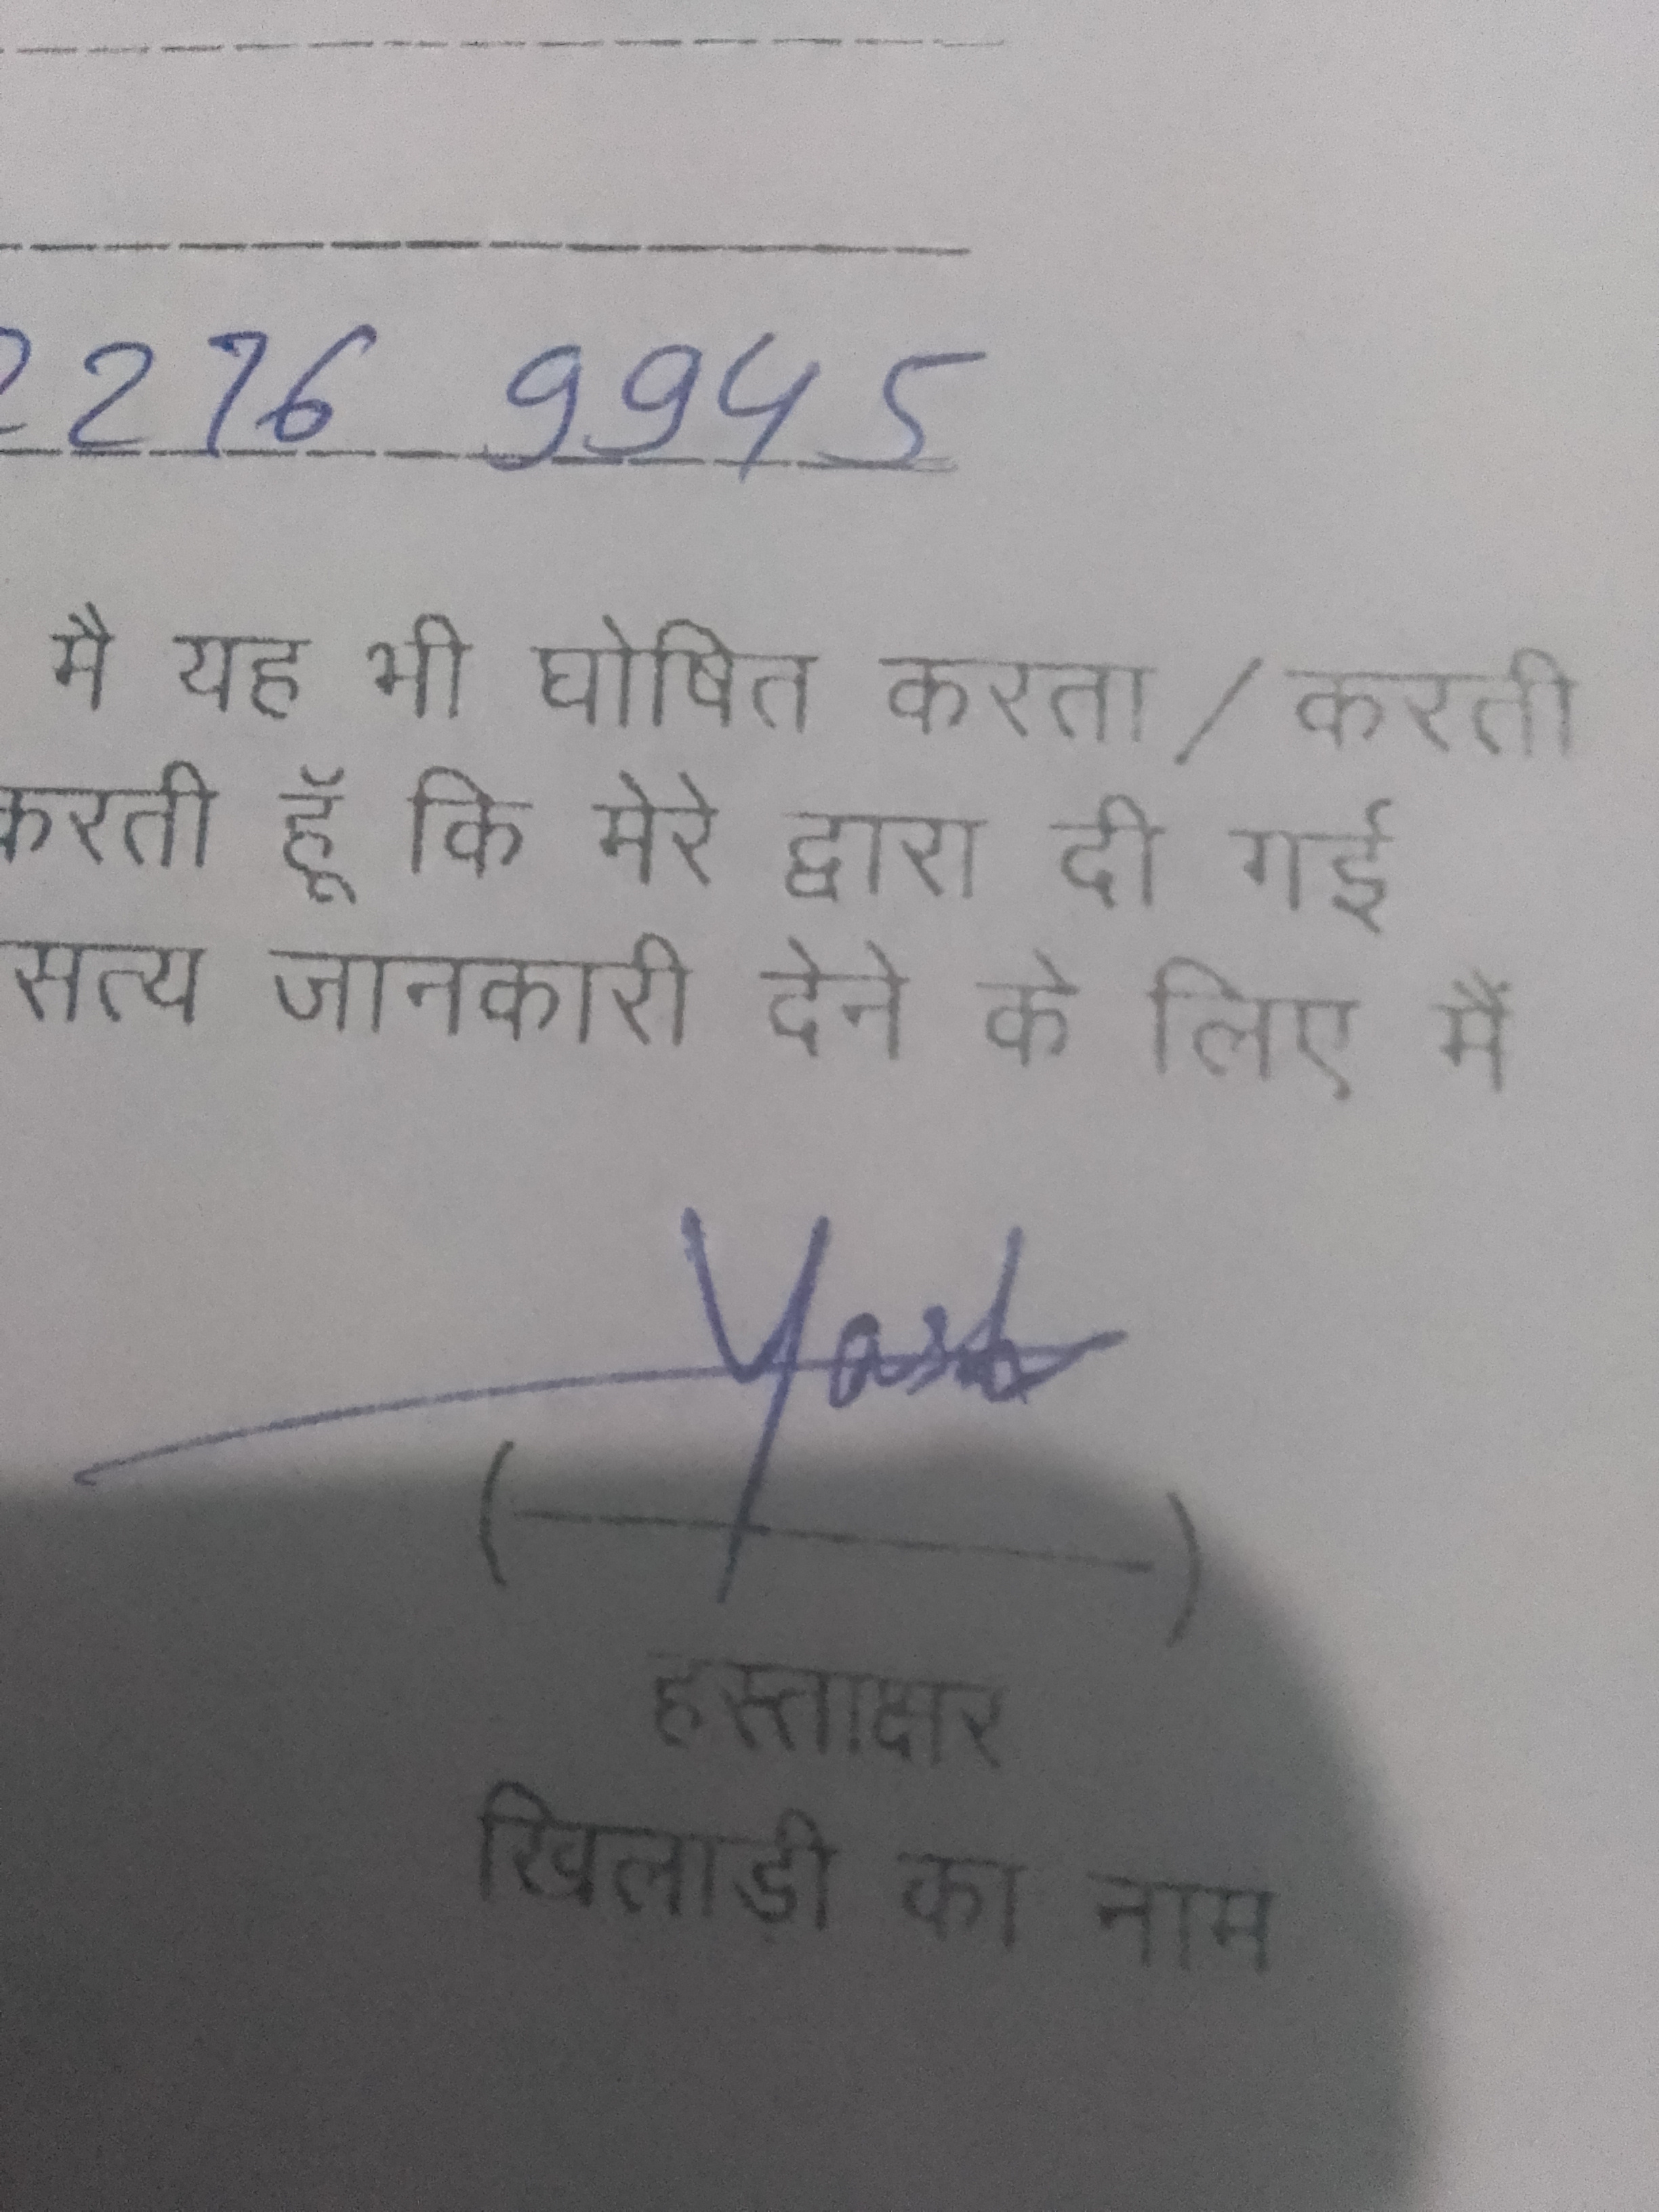 2276 9945
मै यह भी घोषित करता / करती
करती हूॅ कि मेरे द्वारा दी गई
सत्य जानकारी देने के लिए मैं
Yash
हस्ताक्षर
खिलाडी का नाम